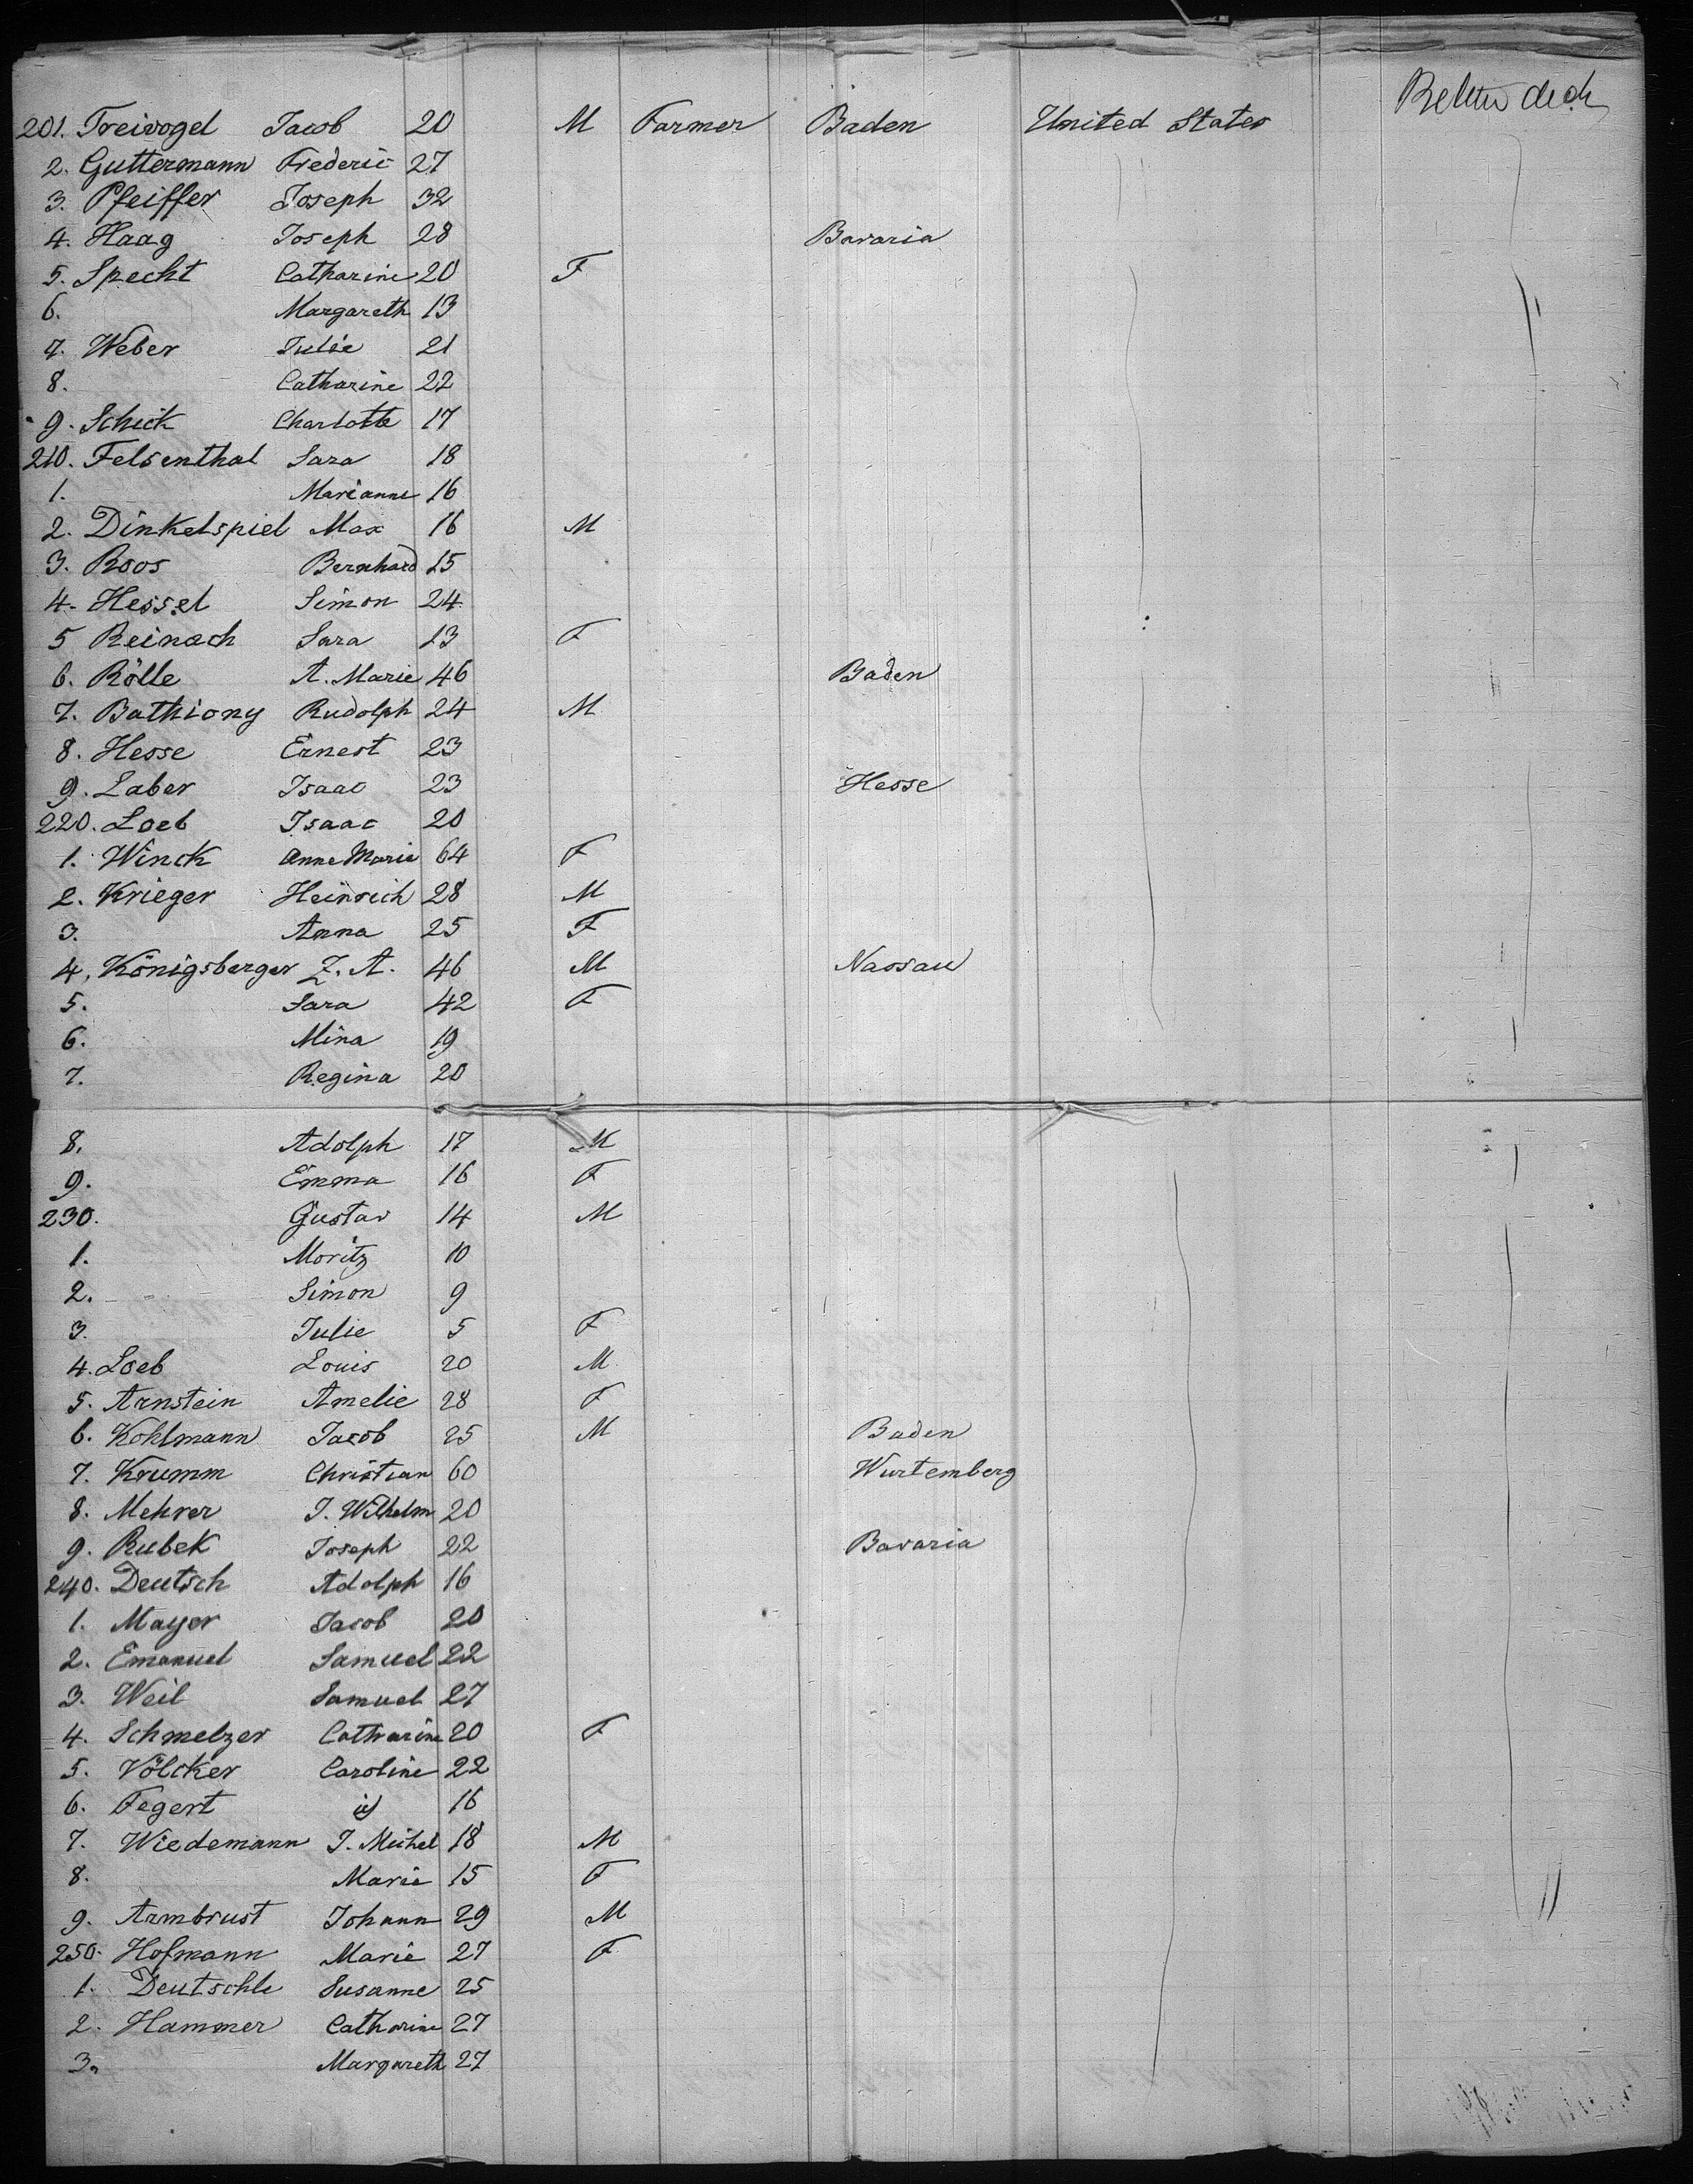 201. Treivogel Jacob 20 M Farmer Baden United States
2. Guttermann Frederic 27
3. Pfeiffer Joseph 32
4. Haag Joseph 28 Bavaria
5. Specht Catharine 20 F
6. Margareth 13
7. Weber Julie 21
8. Catharine 22
9. Schick Charlotte 17
210. Felsenthal Sara 18
1. Marianne 16
2. Dinkelspiel Max 16 M
3. Roos Bernhard 15
4. Hessel Simon 24
5 Reinach Sara 13 F
6. Rölle A. Marie 46 Baden
7. Bathiony Rudolph 24 M
8. Hesse Ernest 23
9. Laber Isaac 23 Hesse
220. Loeb Isaac 20
1. Winck Anne Marie 64 F
2. Krieger Heinrich 28 M
3. Anna 25 F
4. Königsberger Z. A. 46 M Nassau
5. Sara 42 F
6. Mina 19
7. Regina 20
8. Adolph 17 M
9. Emma 16 F
230. Gustav 14 M
1. Moritz 10
2. Simon 9
3. Julie 5 F
4. Loeb Louis 20 M
5. Arnstein Amelie 28 F
6. Kohlmann Jacob 25 M Baden
7. Krumm Christian 60 Wurtemberg
8. Mehrer J. Wilhelm 20
9. Rubek Joseph 22 Bavaria
240. Deutsch Adolph 16
1. Mayer Jacob 20
2. Emanuel Samuel 22
3. Weil Samuel 27
4. Schmelzer Catharine 20 F
5. Völcker Caroline 22
6. Fegert id 16
7. Wiedemann J. Michel 18 M
8. Marie 15 F
9. Armbrust Johann 29 M
250. Hofmann Marie 27 F
1. Deutschle Susanne 25
2. Hammer Catharine 27
3. Margareth 27